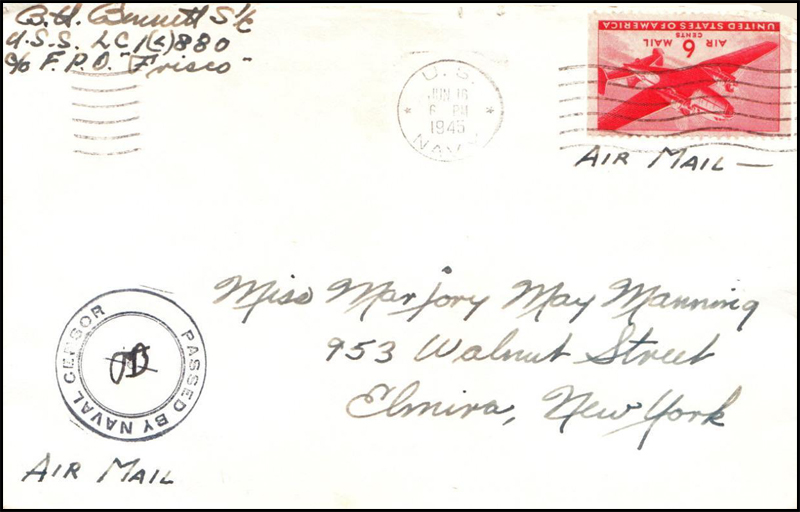 B.H. Bennett S 1/c
U.S.S. LCI(L) 880
c/o F.P.O. "Frisco"
U.S.
JUN 16
6 PM
1945
NAVY
UNITED STATES OF AMERICA
AIR 6 MAIL
CENTS
AIR MAIL —
Miss Marjory May Manning
953 Walnut Street
Elmira, New York
PASSED BY NAVAL CENSOR
AIR MAIL